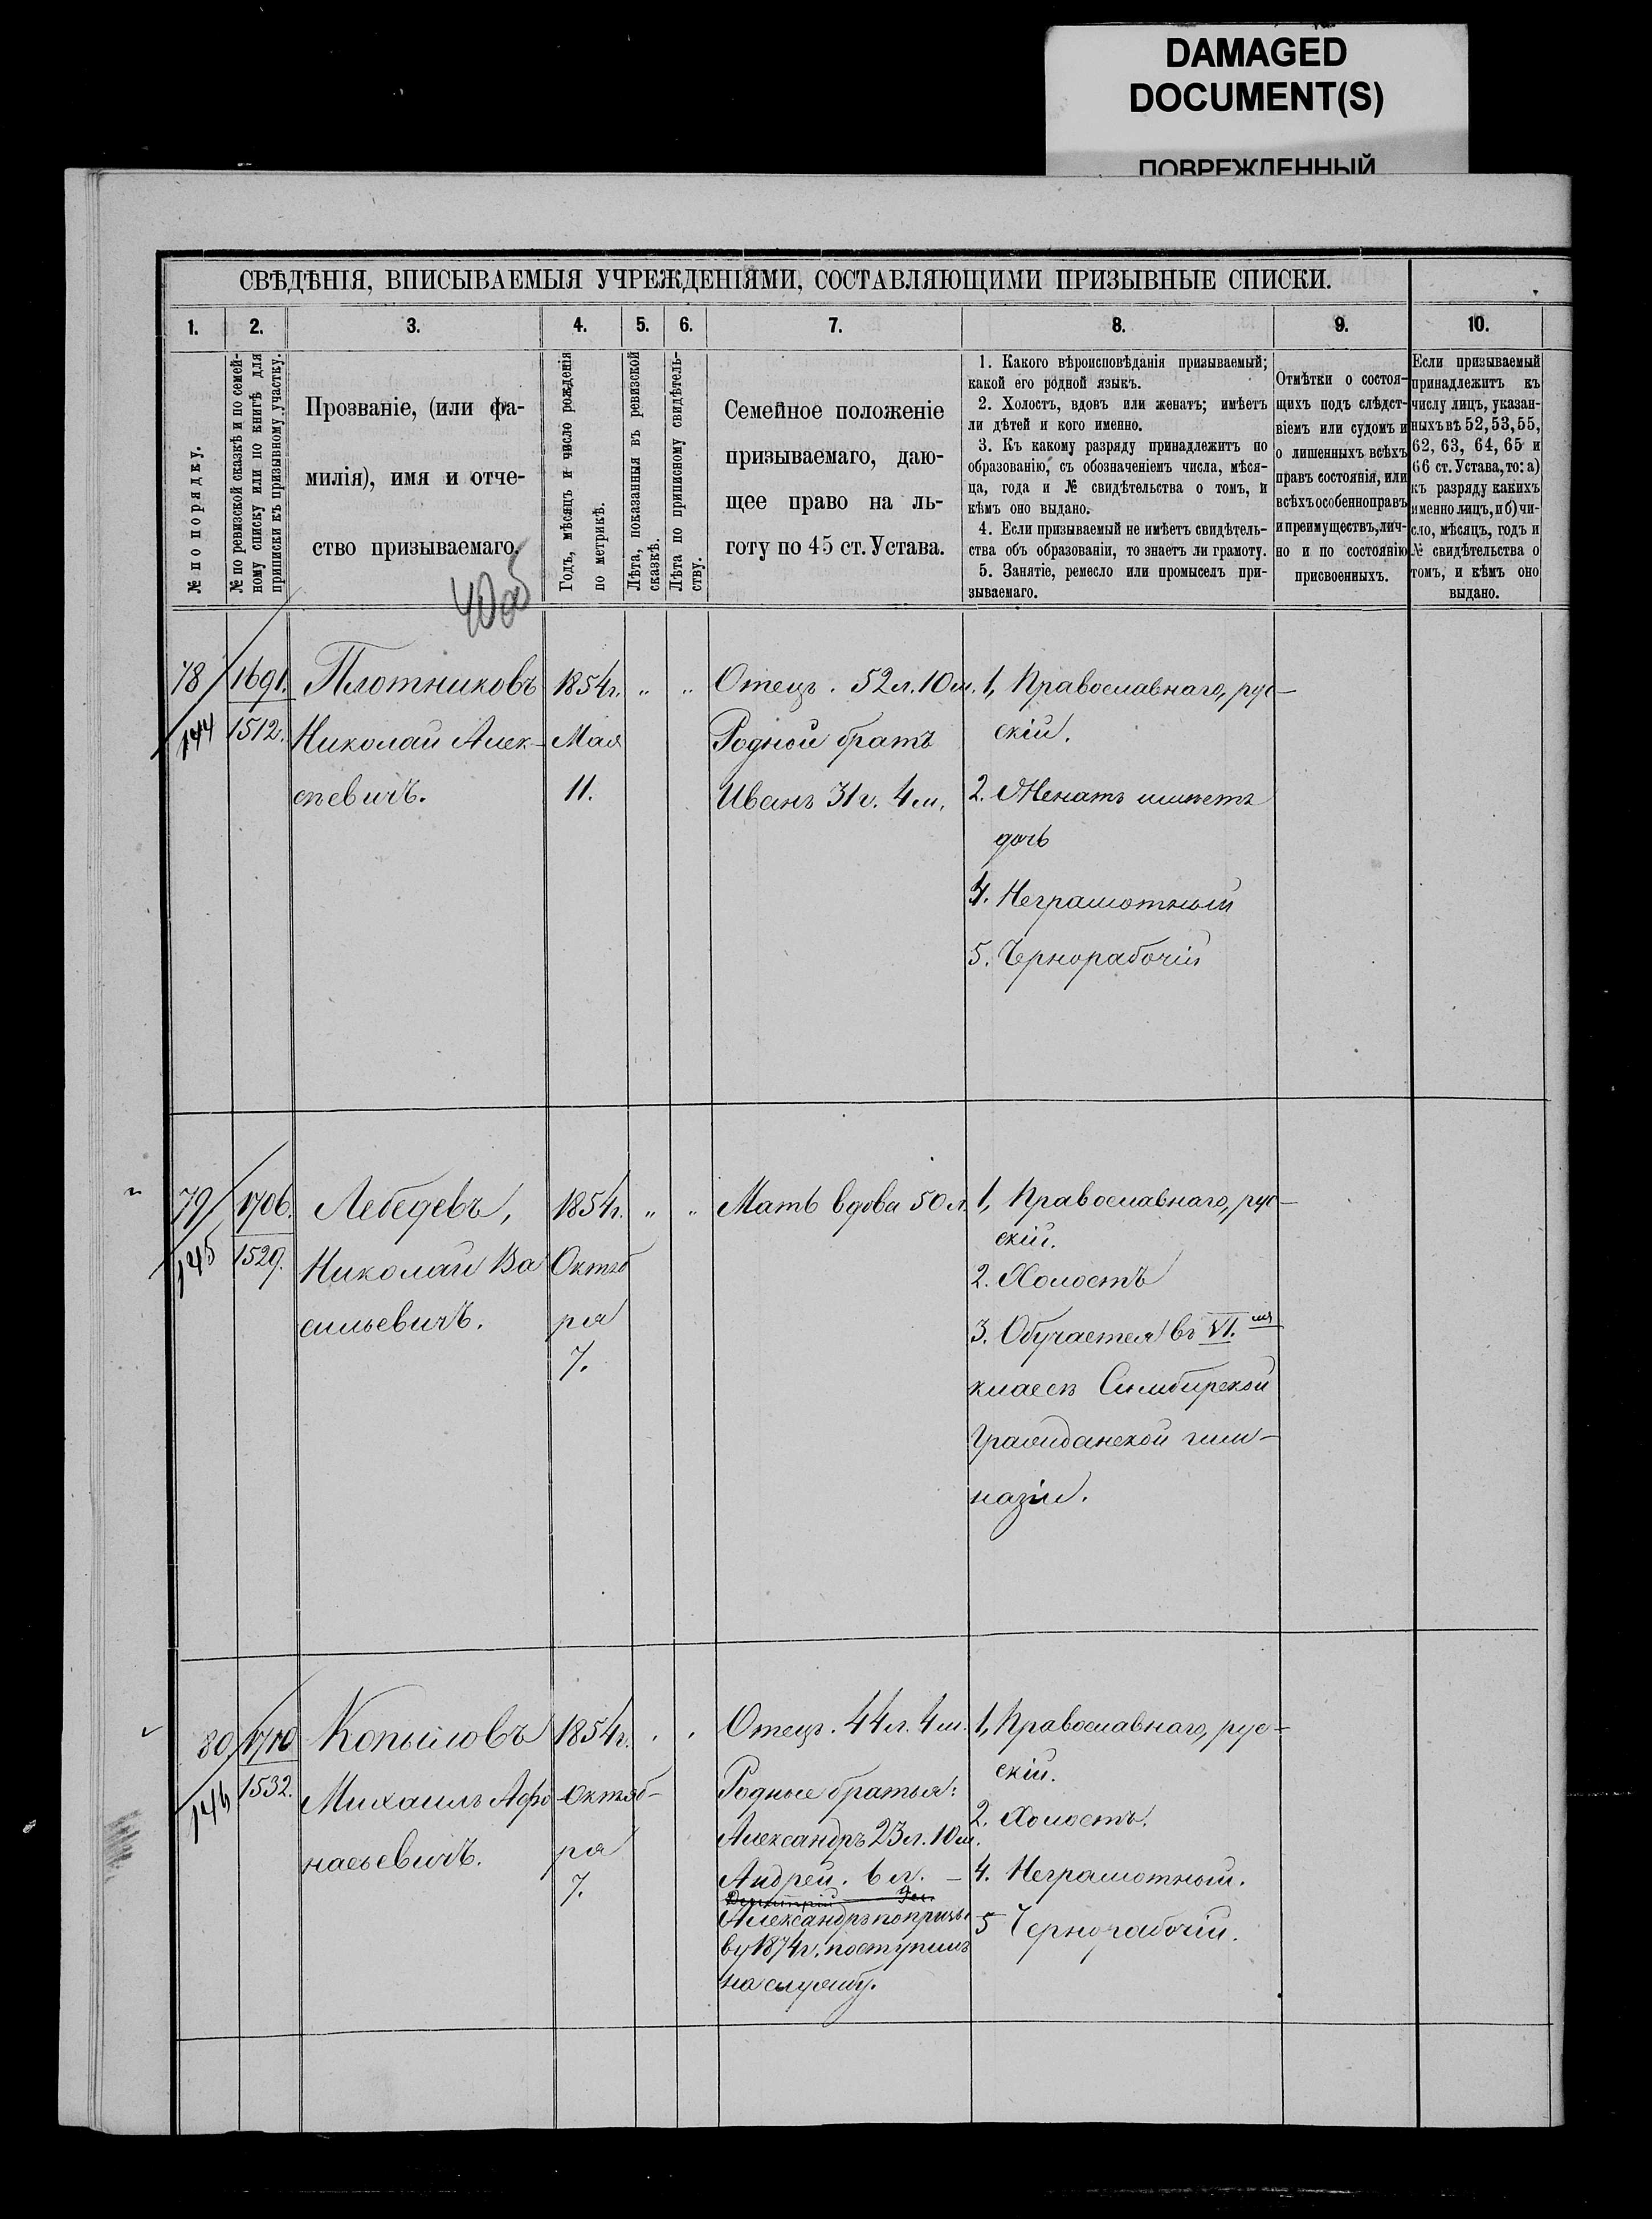 DAMAGED
DOCUMENT(S)
ПОВРЕЖДЕННЫЙ
СВѢДѢНІЯ, ВПИСЫВАЕМЫЯ УЧРЕЖДЕНІЯМИ, СОСТАВЛЯЮЩИМИ ПРИЗЫВНЫЕ СПИСКИ.
1. 2. 3. 4. 5. 6. 7. 8. 9. 10.
№ по порядку.
№ по ревизской сказкѣ и по семей-
ному списку или по книгѣ для
приписки къ призывному участку.
Прозваніе, (или фа-
милія), имя и отче-
ство призываемаго.
Годъ, мѣсяцъ и число рожденія
по метрикѣ.
Лѣта, показанныя въ ревизской
сказкѣ.
Лѣта по приписному свидѣтель-
ству.
Семейное положеніе
призываемаго, даю-
щее право на ль-
готу по 45 ст. Устава.
1. Какого вѣроисповѣданія призываемый;
какой его родной языкъ.
2. Холостъ, вдовъ или женатъ; имѣетъ
ли дѣтей и кого именно.
3. Къ какому разряду принадлежитъ по
образованію, съ обозначеніемъ числа, мѣся-
ца, года и № свидѣтельства о томъ, и
кѣмъ оно выдано.
4. Если призываемый не имѣетъ свидѣтель-
ства объ образованіи, то знаетъ ли грамоту.
5. Занятіе, ремесло или промыселъ при-
зываемаго.
Отмѣтки о состоя-
щихъ подъ слѣдст-
віемъ или судомъ и
о лишенныхъ всѣхъ
правъ состоянія, или
всѣхъ особенно правъ
и преимуществъ, лич-
но и по состоянію
присвоенныхъ.
Если призываемый
принадлежитъ къ
числу лицъ, указан-
ныхъ въ 52, 53, 55,
62, 63, 64, 65 и
66 ст. Устава, то: а)
къ разряду какихъ
именно лицъ, и б) чи-
сло, мѣсяцъ, годъ и
№ свидѣтельства о
томъ, и кѣмъ оно
выдано.
78
144
1691.
1512.
Плотниковъ
Николай Алек-
сѣевичъ.
1854г.
Мая
11.
" "
Отецъ. 52л. 10м.
Родной братъ
Иванъ 31г. 4м.
1, Православнаго, рус-
скій.
2. Женатъ имѣетъ
дочь
4. Неграмотный
5. Чернорабочій
79
145
1706.
1529.
Лебедевъ,
Николай Ва
сильевичъ.
1854г.
Октяб
ря
7.
" "
Мать вдова 50л.
1, Православнаго, рус-
скій.
2. Холостъ
3. Обучается въ VI.мъ
классѣ Симбирской
Гражданской гим-
назіи.
80
146
1710
1532.
Копыловъ
Михаилъ Афо
насьевичъ.
1854г.
Октяб-
ря
7.
Отецъ. 44л. 4м.
Родные братья:
Александръ 23л. 10м.
Андрей. 6л. -
Дмитрій
Александръ по призы
ву 1874г. поступилъ
на службу.
1, Православнаго, рус-
скій.
2. Холостъ.
4. Неграмотный.
5 Чернорабочій.